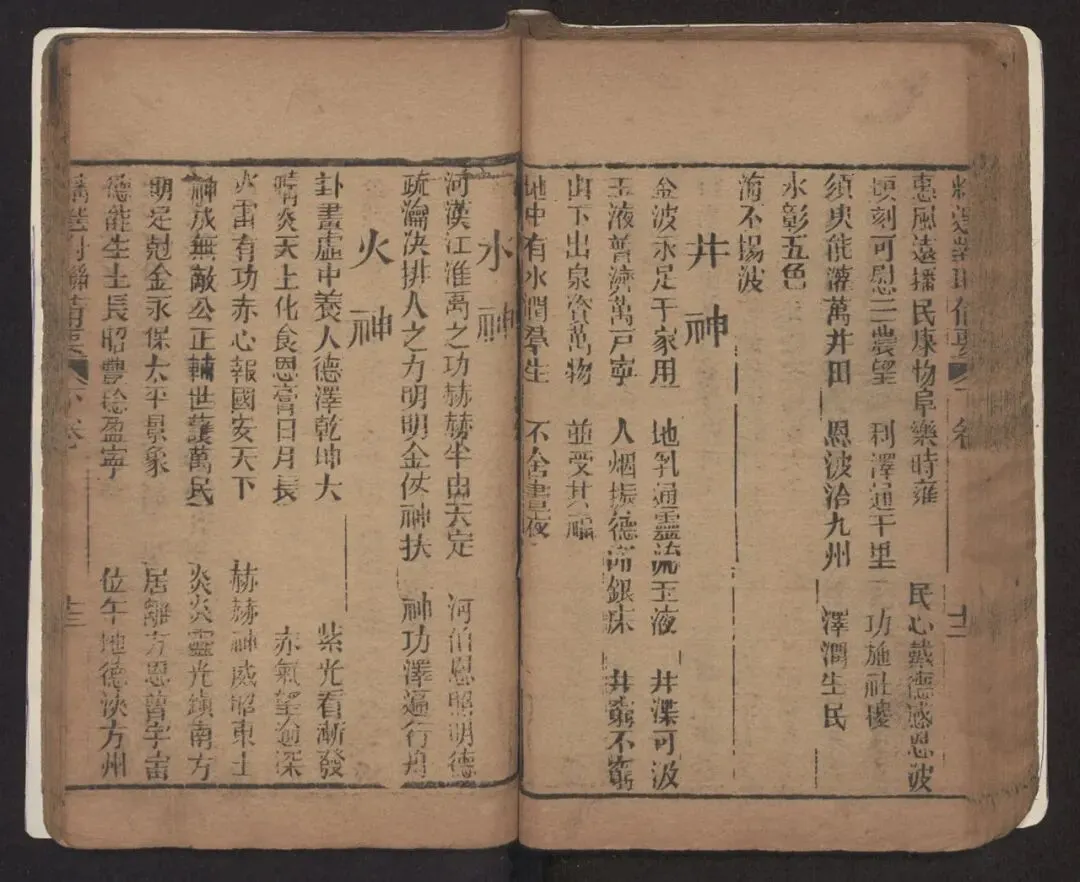 惠風遠播民康物阜樂時雍 民心戴德感恩波
頃刻可慰三農望 利澤通千里 功施社稷
須臾能灌萬井田 恩波治九州 澤潤生民
水彰五色
海不揚波
井神
金波水足于家用 地乳通靈流玉液 井渫可汲
玉液普濟萬戶寧 人烟振德 銀床 井窮不窮
山下出泉資萬物 並受其福
地中有水潤羣生 不舍晝夜
水神
河漢江淮禹之功赫赫 定 河伯恩照明德
疏瀹決排人之力明明金仗神扶 神功澤遍行舟
火神
卦畫虛中養人德澤乾坤大 紫光看漸發
晴炎天上化食恩膏日月長 赤氣望逾深
火雷有功赤心報國安天下 赫赫神威昭東土
神成無敵公正輔世護萬民 炎炎靈光鎮南方
明足尅金永保太平景象 居離方恩普宇宙
德能生土長昭豐稔盈寧 位午地德浹方州
卷 十三